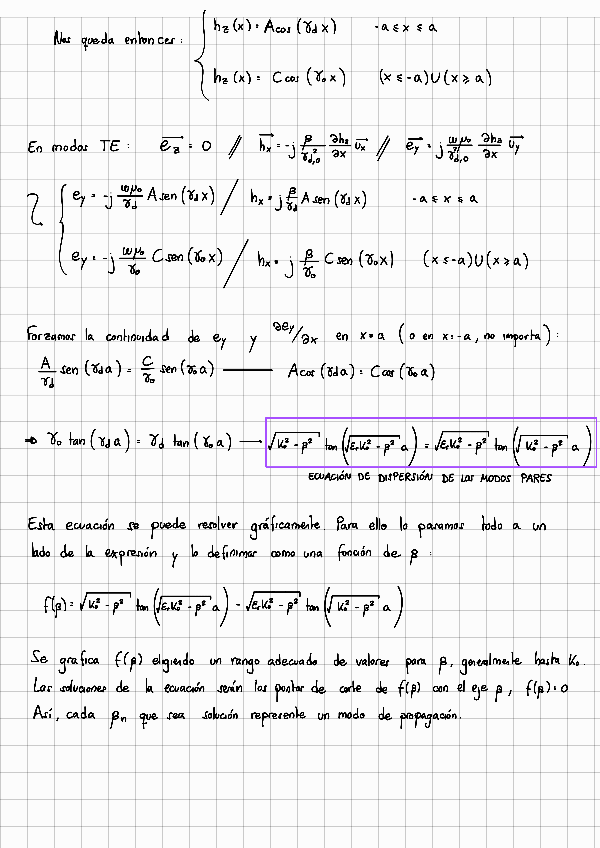 Nos queda entonces: { h_z(x) = A cos(γ_d x)   -a ≤ x ≤ a
h_z(x) = C cos(γ_0 x)   (x ≤ -a) U (x ≥ a)
En modos TE: e_z = 0 // h_x = -j β/γ²_{d,0} ∂h_z/∂x u_x // e_y = j ωμ_0/γ²_{d,0} ∂h_z/∂x u_y
e_y = -j ωμ_0/γ_d A sen(γ_d x) / h_x = j β/γ_d A sen(γ_d x)   -a ≤ x ≤ a
e_y = -j ωμ_0/γ_0 C sen(γ_0 x) / h_x = j β/γ_0 C sen(γ_0 x)   (x ≤ -a) U (x ≥ a)
Forzamos la continuidad de e_y y ∂e_y/∂x en x=a (o en x=-a, no importa):
A/γ_d sen(γ_d a) = C/γ_0 sen(γ_0 a) —— A cos(γ_d a) = C cos(γ_0 a)
⇒ γ_0 tan(γ_d a) = γ_d tan(γ_0 a) → √(K_0² - β²) tan(√(ε_r K_0² - β²) a) = √(ε_r K_0² - β²) tan(√(K_0² - β²) a)
ECUACIÓN DE DISPERSIÓN DE LOS MODOS PARES
Esta ecuación se puede resolver gráficamente. Para ello lo pasamos todo a un
lado de la expresión y lo definimos como una función de β:
f(β) = √(K_0² - β²) tan(√(ε_r K_0² - β²) a) - √(ε_r K_0² - β²) tan(√(K_0² - β²) a)
Se grafica f(β) eligiendo un rango adecuado de valores para β, generalmente hasta K_0.
Las soluciones de la ecuación serán los puntos de corte de f(β) con el eje β, f(β)=0
Así, cada β_n que sea solución represente un modo de propagación.